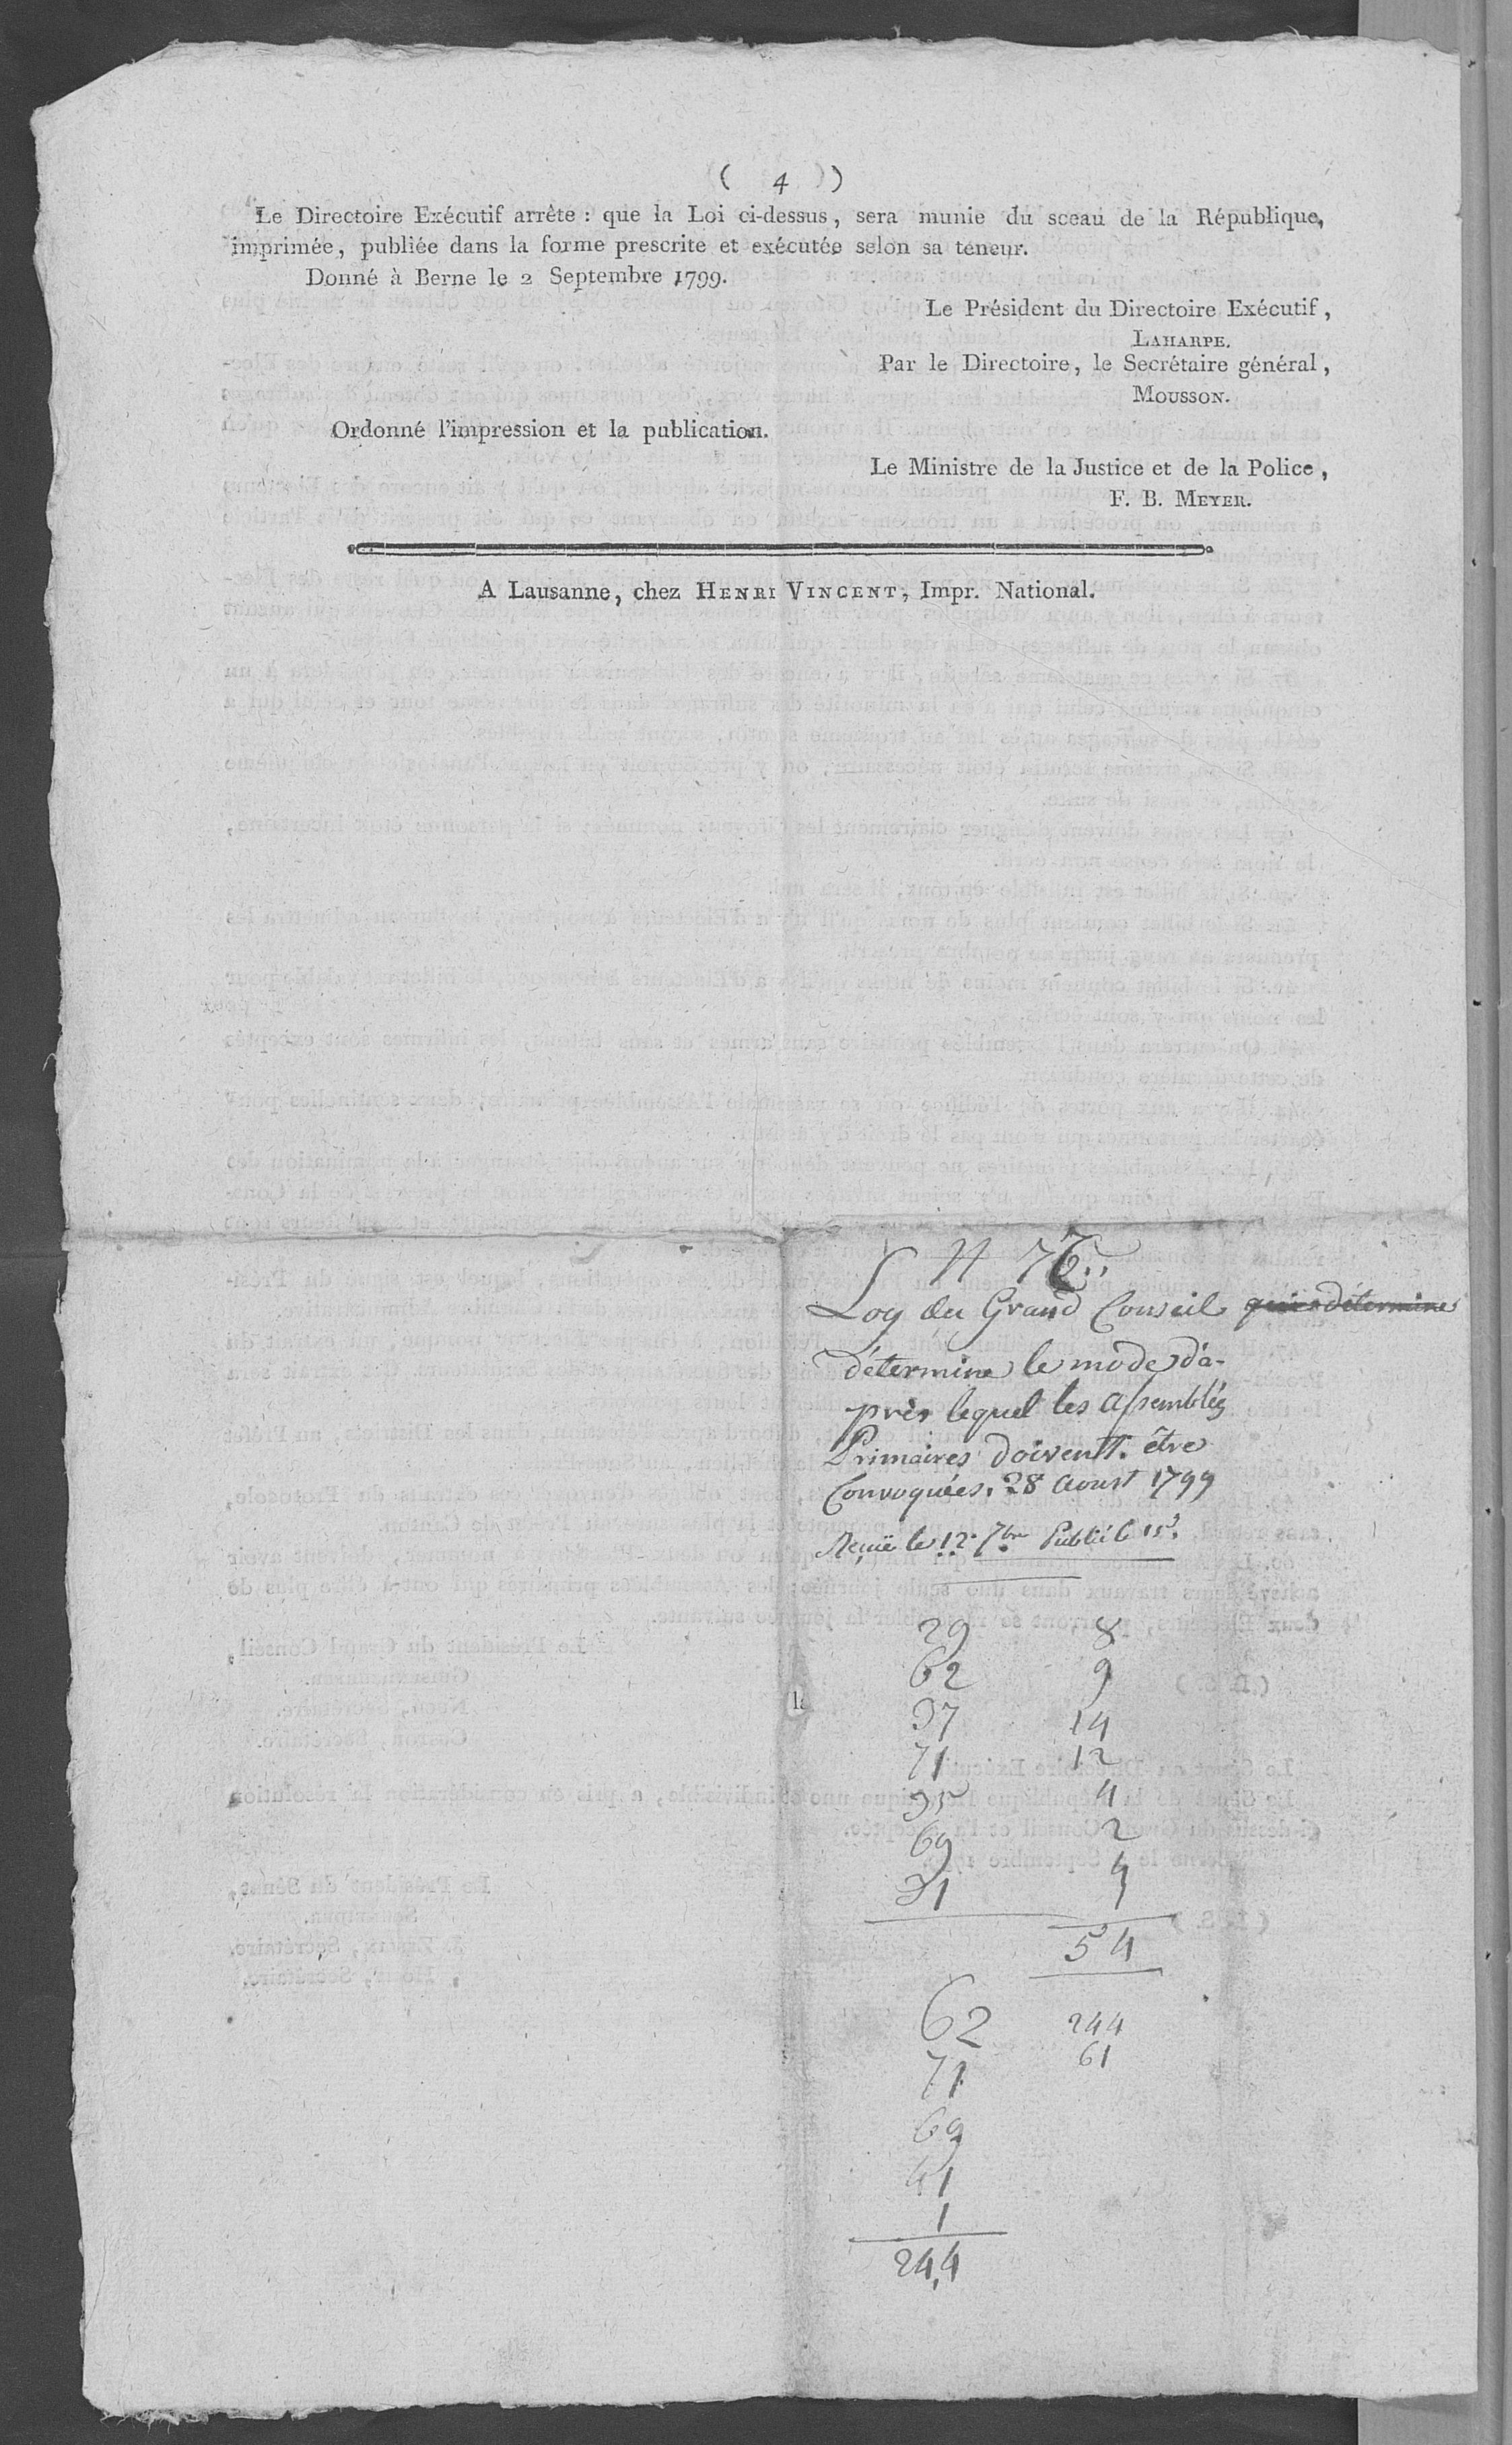 ( 4 )
Le Directoire Exécutif arrête : que la Loi ci-dessus, sera munie du sceau de la République,
imprimée, publiée dans la forme prescrite et exécutée selon sa teneur.
Donné à Berne le 2 Septembre 1799.
Le Président du Directoire Exécutif,
LAHARPE.
Par le Directoire, le Secrétaire général,
MOUSSON.
Ordonné l'impression et la publication.
Le Ministre de la Justice et de la Police,
F. B. MEYER.
A Lausanne, chez HENRI VINCENT, Impr. National.
N 76.
Loy du Grand Conseil qui determine
détermine le mode d'a-
près lequel les assemblées
Primaires doivent être
Convoquées. 28 aoust 1799
Reçüe le 12. 7bre Publié le 15.
29 8
62 9
37 14
71 12
35 4
69 2
31 5
54
62 244
71 61
69
41
1
244